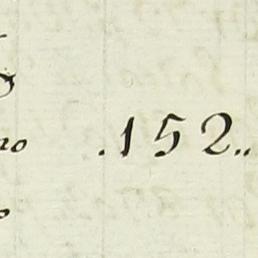 no .152..